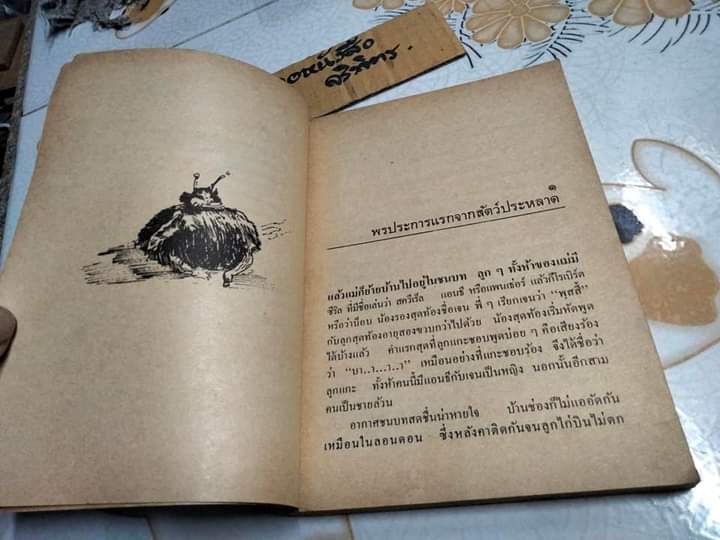 ๑
พรประการแรกจากสัตว์ประหลาด
แล้วแม่ก็ย้ายบ้านไปอยู่ในชนบท ลูก ๆ ทั้งห้าของแม่มี
ซีริล ที่มีชื่อเล่นว่า สควีเร็ล แอนธี หรือแพนเธ่อร์ แล้วก็โรเบิร์ต
หรือว่าบ๊อบ น้องรองสุดท้องชื่อเจน พี่ ๆ เรียกเจนว่า "พุสสี้"
กับลูกสุดท้องอายุสองขวบกว่าไปด้วย น้องสุดท้องเริ่มหัดพูด
ได้บ้างแล้ว คำแรกสุดที่ลูกแกะชอบพูดบ่อย ๆ คือเสียงร้อง
ว่า "บา..า...า..า" เหมือนอย่างที่แกะชอบร้อง จึงได้ชื่อว่า
ลูกแกะ ทั้งห้าคนนี้มีแอนธีกับเจนเป็นหญิง นอกนั้นอีกสาม
คนเป็นชายล้วน
อากาศชนบทสดชื่นน่าหายใจ บ้านช่องก็ไม่แออัดกัน
เหมือนในลอนดอน ซึ่งหลังคาติดกันจนลูกไก่บินไม่ตก